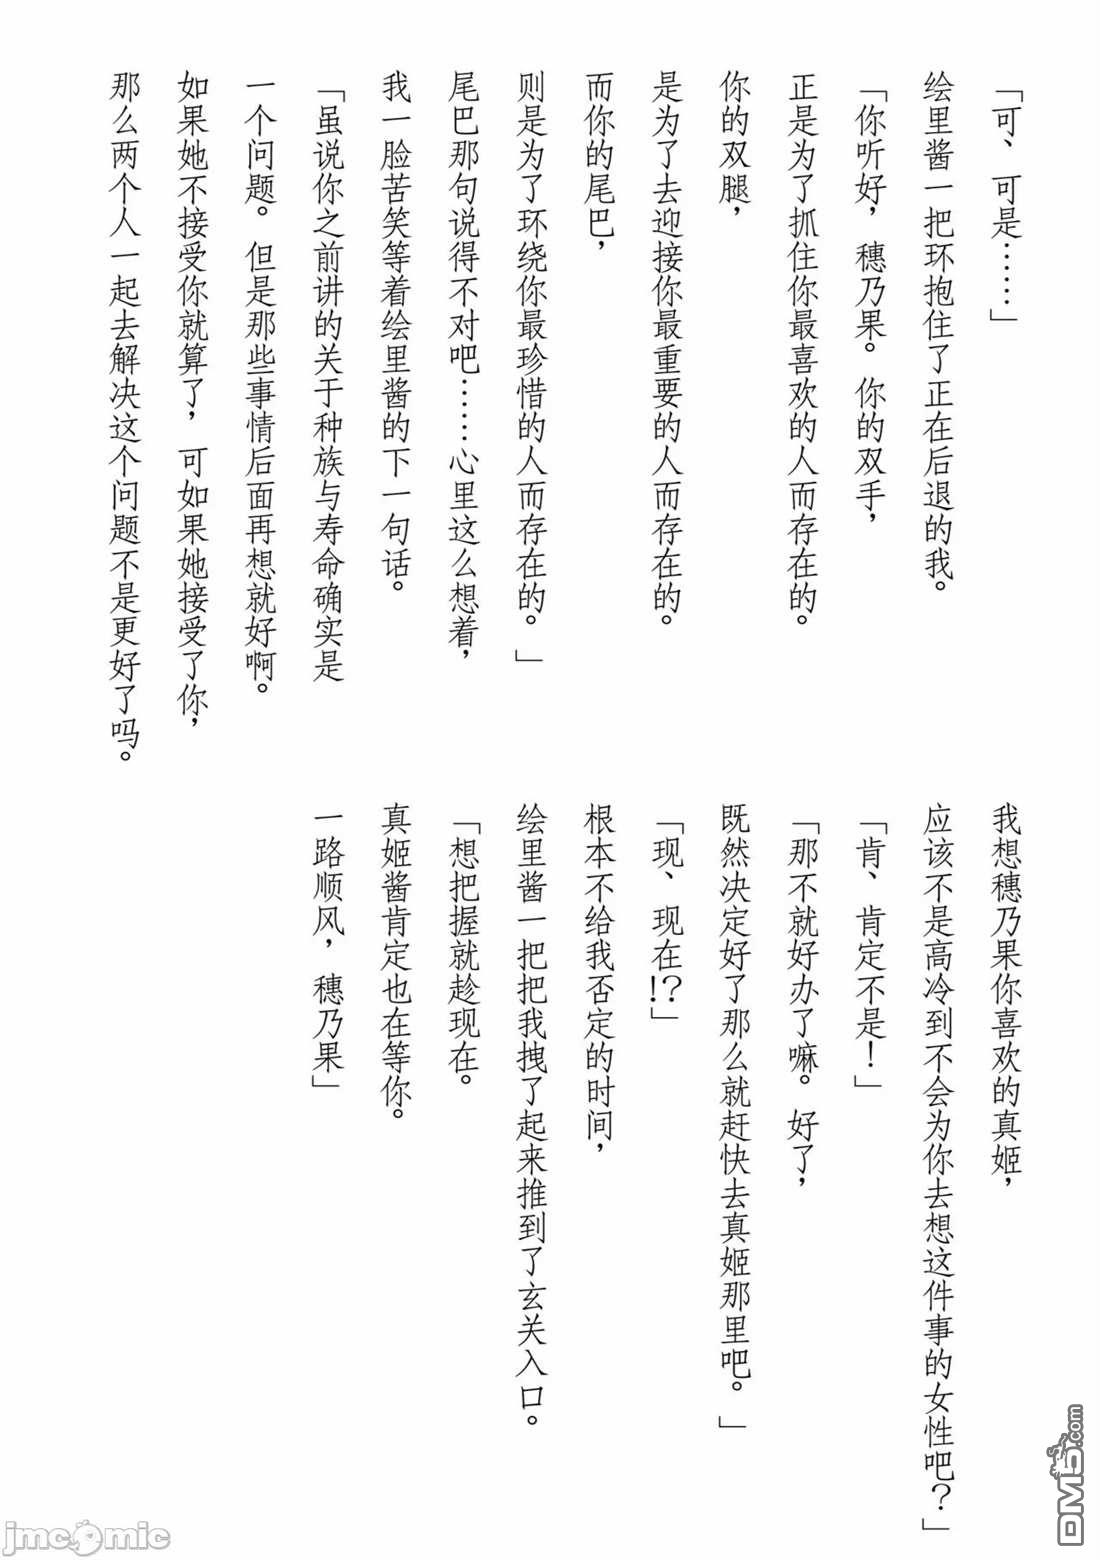 「可、可是……」
绘里酱一把环抱住了正在后退的我。
「你听好，穗乃果。你的双手，
正是为了抓住你最喜欢的人而存在的。
你的双腿，
是为了去迎接你最重要的人而存在的。
而你的尾巴，
则是为了环绕你最珍惜的人而存在的。」
尾巴那句说得不对吧……心里这么想着，
我一脸苦笑等着绘里酱的下一句话。
「虽说你之前讲的关于种族与寿命确实是
一个问题。但是那些事情后面再想就好啊。
如果她不接受你就算了，可如果她接受了你，
那么两个人一起去解决这个问题不是更好了吗。
我想穗乃果你喜欢的真姬，
应该不是高冷到不会为你去想这件事的女性吧？」
「肯、肯定不是！」
「那不就好办了嘛。好了，
既然决定好了那么就赶快去真姬那里吧。」
「现、现在!?」
根本不给我否定的时间，
绘里酱一把把我拽了起来推到了玄关入口。
「想把握就趁现在。
真姬酱肯定也在等你。
一路顺风，穗乃果」
jmcomic
DM5.com